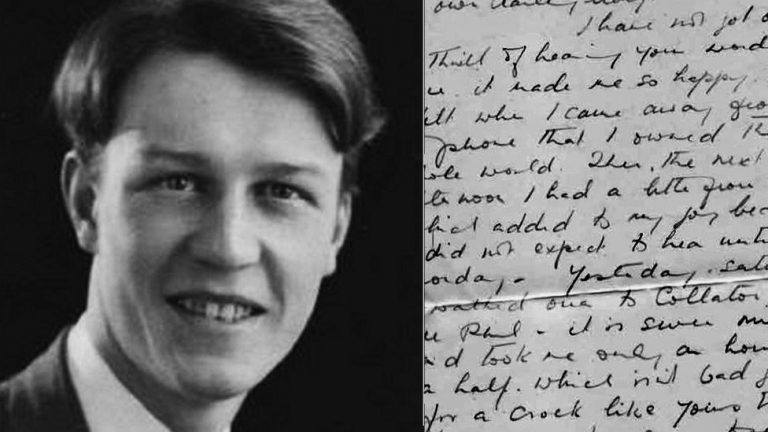 own darling
I have not got o
Thrill of hearing your word
it made me so happy.
when I came away from
phone that I owned the
whole world. Then, the next
noon I had a letter from
added to my joy bec
did not expect to hear until
Yesterday, Sat
walked over to
Paul - it is seven mi
took me only an hour
a half. which isn't bad g
for a crock like yours